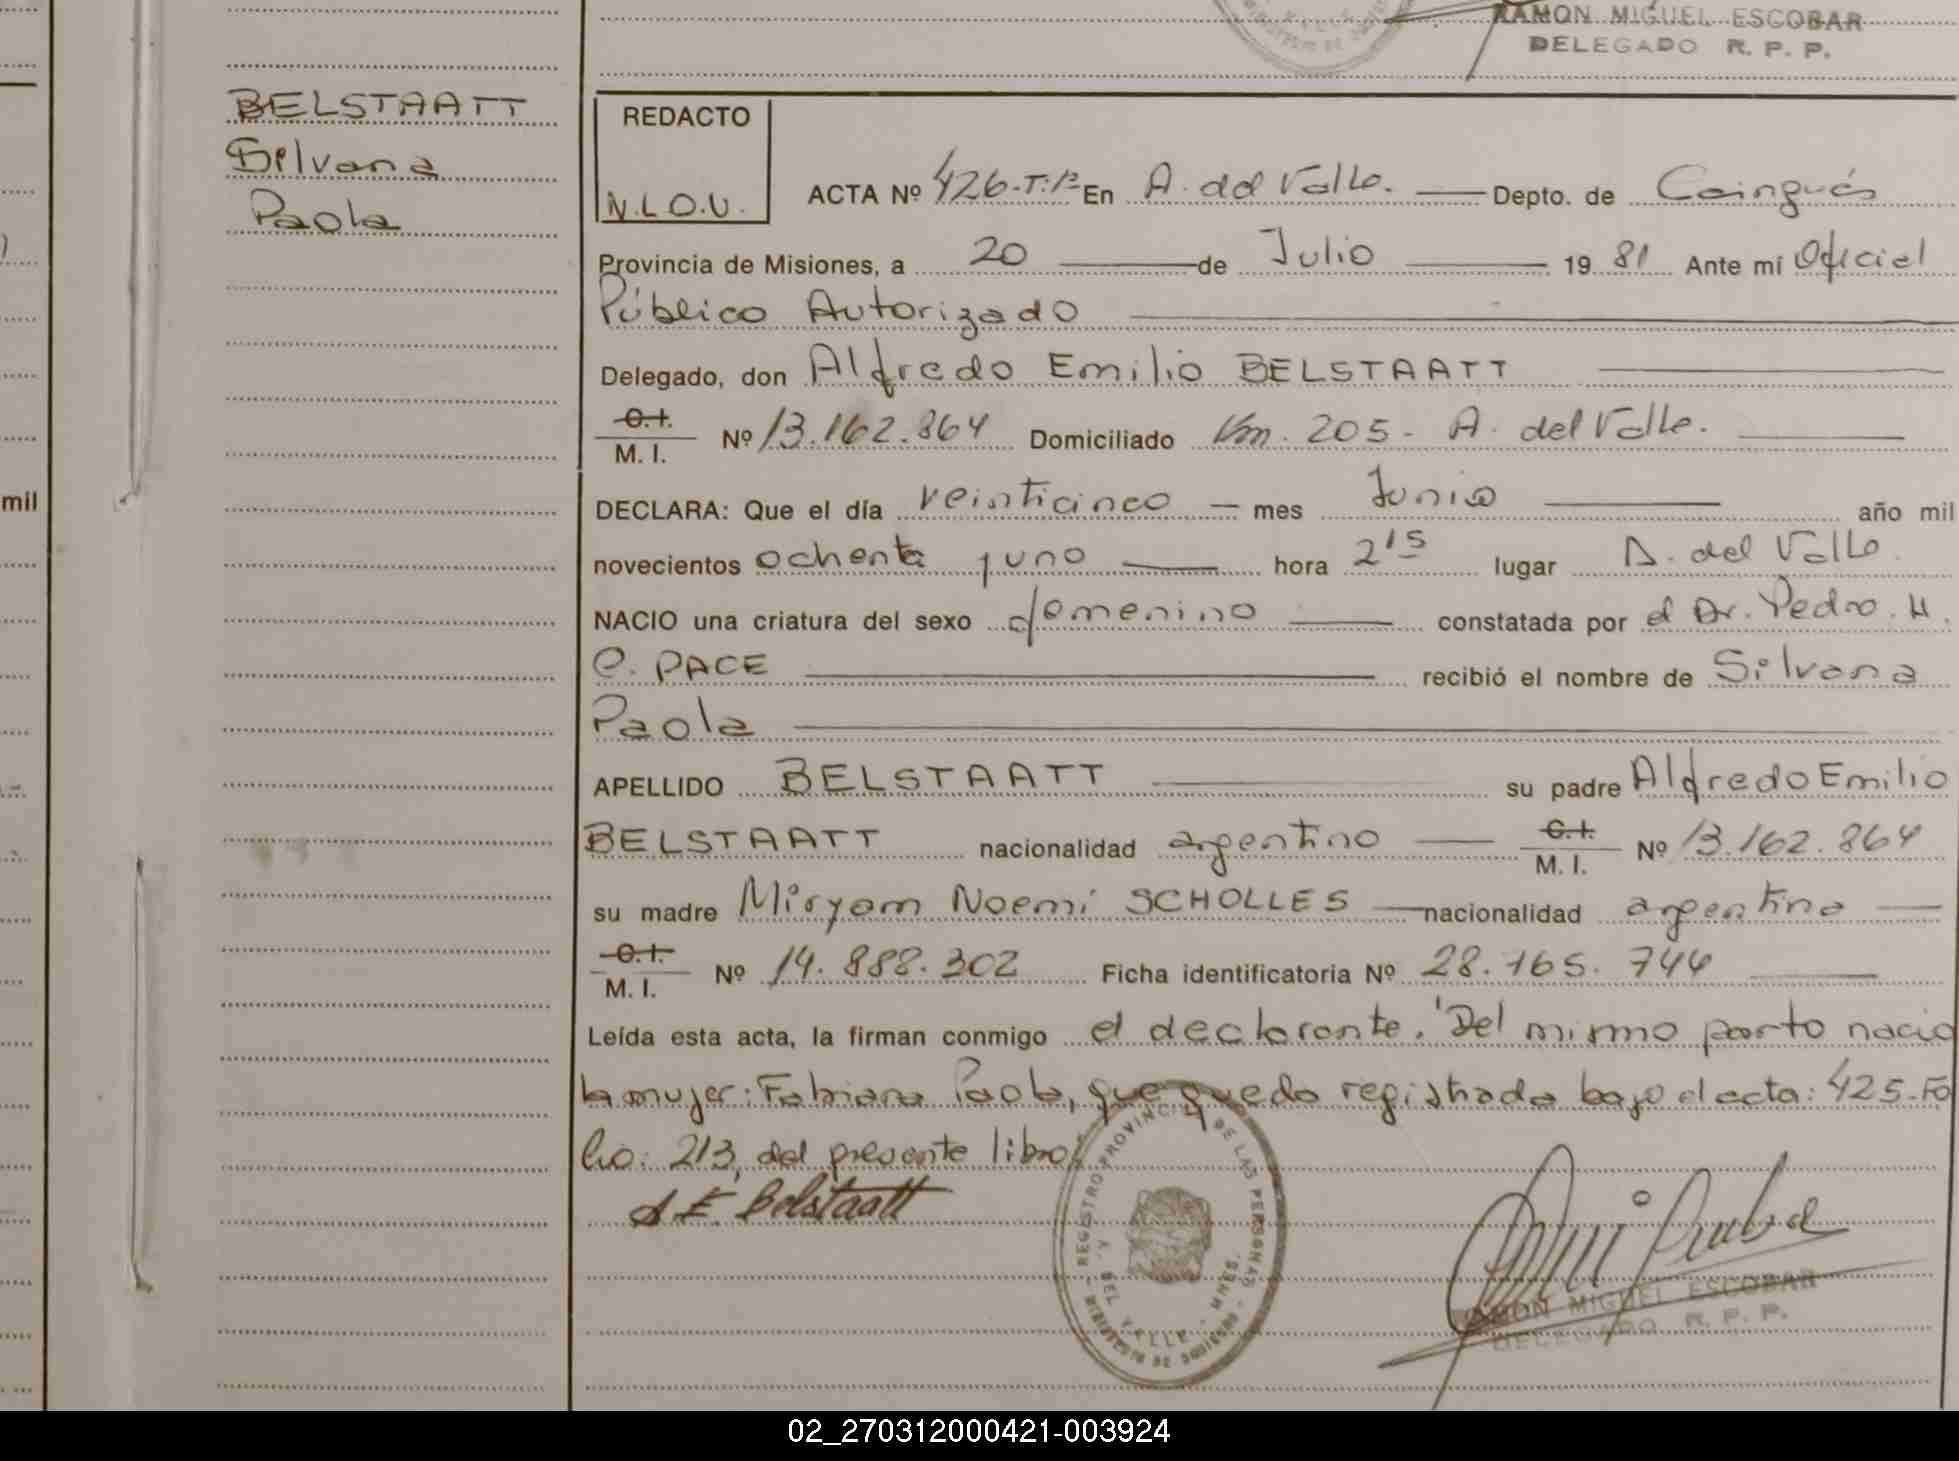 RAMON MIGUEL ESCOBAR
DELEGADO R. P. P.
BELSTAATT
Silvana
Paola
mil
REDACTO
N.L.O.U.
ACTA Nº 426-T:1º En A. del Valle. Depto. de Cainguás
Provincia de Misiones, a 20 de Julio 19 81 Ante mí Oficial
Público Autorizado
Delegado, don Alfredo Emilio BELSTAATT
C.I.
M. I. Nº 13.162.864 Domiciliado Km. 205- A. del Valle.
DECLARA: Que el día veinticinco mes Junio año mil
novecientos ochenta y uno hora 2 15 lugar A. del Valle.
NACIO una criatura del sexo femenino constatada por el Dr. Pedro. H.
C. PACE recibió el nombre de Silvana
Paola
APELLIDO BELSTAATT su padre Alfredo Emilio
BELSTAATT nacionalidad argentino C.I. M. I. Nº 13.162.864
su madre Miryam Noemí SCHOLLES nacionalidad argentina
C.I.
M. I. Nº 14.888.302 Ficha identificatoria Nº 28.165.744
Leída esta acta, la firman conmigo el declarante. Del mismo parto nacio
la mujer: Fabiana Paola, que queda registrada bajo el acta: 425-Fo
lio: 213, del presente libro
A E. Belstaatt
REGISTRO PROVINCIAL DE LAS PERSONAS
DEL VALLE - MNES.
MINISTERIO DE GOBIERNO
RAMON MIGUEL ESCOBAR
DELEGADO R. P. P.
02_270312000421-003924